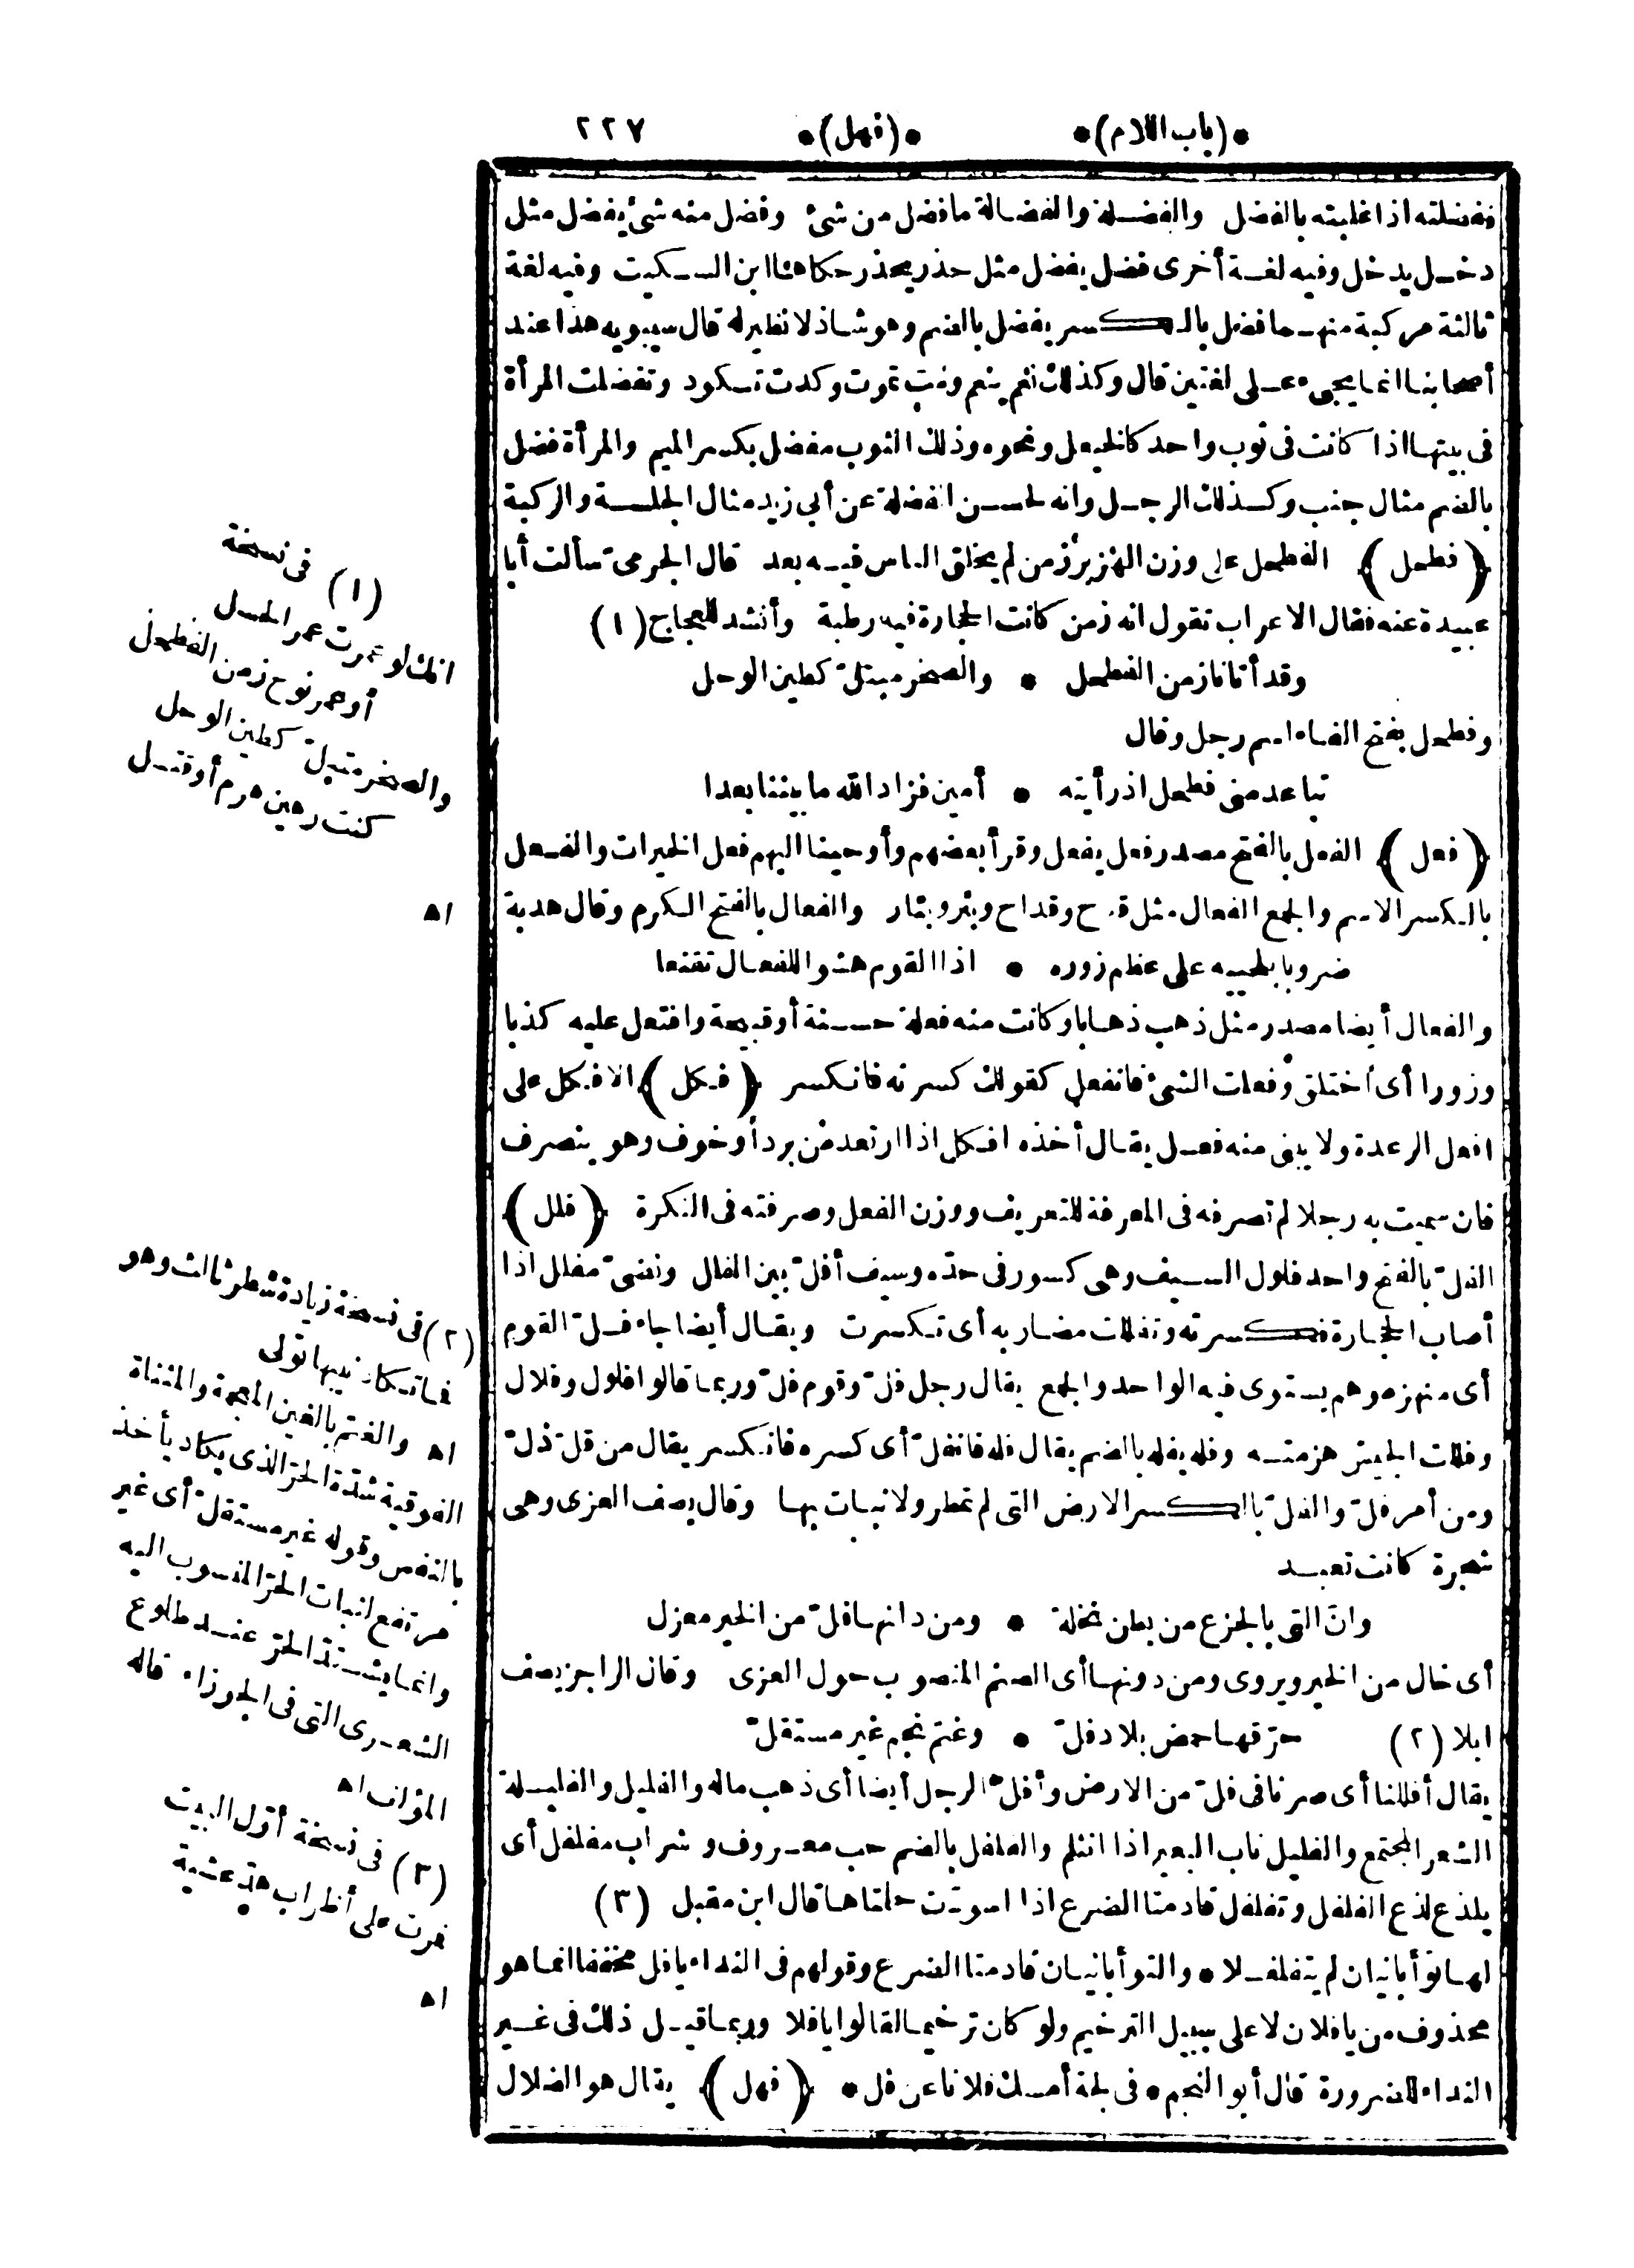 *(باب اللام)* *(فهل)* ٢٢٧
ففضلته اذا غلبته بالفضل والفضلة والفضالة ما فضل من شئ وفضل منه شئ يفضل مثل
دخل يدخل وفيه لغة أخرى فضل يفضل مثل حذر يحذر حكاها ابن السكيت وفيه لغة
ثالثة مركبة منهما فضل بالكسر يفضل بالضم وهو شاذ لا نظير له قال سيبويه هذا عند
أصحابنا انما يجىء على لغتين قال وكذلك نعم ينعم ومت تموت وكدت تكود وتفضلت المرأة
فى بيتها اذا كانت فى ثوب واحد كالخيعل ونحوه وذلك الثوب مفضل بكسر الميم والمرأة فضل
بالضم مثال جنب وكذلك الرجل وانه لحسن الفضلة عن أبى زيد مثال الجلسة والركبة
﴿فطحل﴾ الفطحل على وزن الهزبر زمن لم يخلق الناس فيه بعد قال الجرمىّ سألت أبا
عبيدة عنه فقال الاعراب تقول انه زمن كانت الحجارة فيه رطبة وأنشد للعجاج (١)
وقد أتانا زمن الفطحل * والصخر مبتلّ كطين الوحل
وفطحل بفتح الفاء اسم رجل وقال
تباعد منى فطحل اذ رأيته * أمين فزاد الله ما بيننا بعدا
﴿فعل﴾ الفعل بالفتح مصدر فعل يفعل وقرأ بعضهم وأوحينا اليهم فعل الخيرات والفعل
بالكسر الاسم والجمع الفعال مثل قدح وقداح وبئر وبئار والفعال بالفتح الكرم وقال هدبة
ضروبا بلحييه على عظم زوره * اذا القوم هشوا للفعال تقنعا
والفعال أيضا مصدر مثل ذهب ذهابا وكانت منه فعلة حسنة أو قبيحة وافتعل عليه كذبا
وزورا أى اختلق وفعلت الشئ فانفعل كقولك كسرته فانكسر ﴿فكل﴾ الافكل على
افعل الرعدة ولا يبنى منه فعل يقال أخذه افكل اذا ارتعد من برد أو خوف وهو ينصرف
فان سميت به رجلا لم تصرفه فى المعرفة للتعريف ووزن الفعل وصرفته فى النكرة ﴿فلل﴾
الفلّ بالفتح واحد فلول السيف وهى كسور فى حدّه وسيف أفلّ بين الفلل ونصىّ مفلل اذا
أصاب الحجارة فكسرته وتفللت مضاربه أى تكسرت ويقال أيضا جاء فلّ القوم
أى منهزموهم يستوى فيه الواحد والجمع يقال رجل فلّ وقوم فلّ وربما قالوا فلول وفلال
وفللت الجيش هزمته وفله يفله بالضم يقال فله فانفلّ أى كسره فانكسر يقال من قلّ ذلّ
ومن أمر فلّ والفلّ بالكسر الارض التى لم تمطر ولا نبات بها وقال يصف العزى وهى
شجرة كانت تعبد
وان التى بالجزع من بطن نخلة * ومن دانها فلّ من الخير معزل
أى خال من الخير ويروى ومن دونها أى الصنم المنصوب حول العزى وقال الراجز يصف
ابلا (٢) حرّقها حمض بلاد فلّ * وغتم نجم غير مستقلّ
يقال أفللنا أى صرنا فى فلّ من الارض وأفلّ الرجل أيضا أى ذهب ماله والفليل والفليلة
الشعر المجتمع والفليل ناب البعير اذا انثلم والفلفل بالضم حب معروف وشراب مفلفل أى
يلذع لذع الفلفل وتفلفل قادمتا الضرع اذا اسودّت حلمتاها قال ابن مقبل (٣)
لها توأبانيان لم يتفلفلا * والتوأبانيان قادمتا الضرع وقولهم فى النداء يا فل مخففا انما هو
محذوف من يا فلان لا على سبيل الترخيم ولو كان ترخيما لقالوا يا فلا وربما قيل ذلك فى غير
النداء للضرورة قال أبو النجم * فى لجة أمسك فلانا عن فل * ﴿فهل﴾ يقال هو الضلال
(١) فى نسخة
انك لو عمرت عمر الحسل
أو عمر نوح زمن الفطحل
والصخر مبتلّ كطين الوحل
كنت رهين هرم أو قتل
اه
(٢) فى نسخة زيادة شطر ثالث وهو
فما تكاد نيبها تولى
اه والغتم بالغين المعجمة والمثناة
الفوقية شدّة الحرّ الذى يكاد يأخذ
بالنفس وقوله غير مستقلّ أى غير
مرتفع لثبات الحرّ المنسوب اليه
وانما يشتدّ الحرّ عند طلوع
الشعرى التى فى الجوزاء قاله
المؤلف اه
(٣) فى نسخة أوّل البيت
فمرت على أظراب هرّ عشية
اه